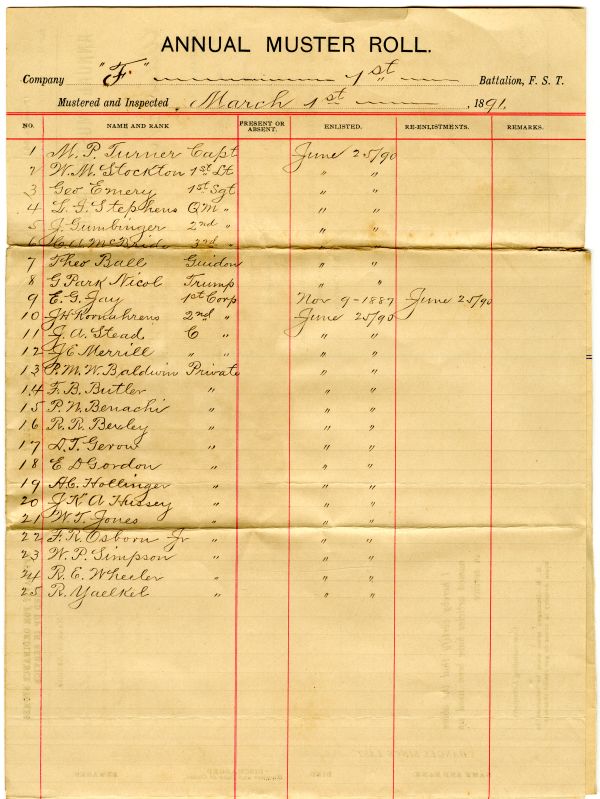 ANNUAL MUSTER ROLL.
Company "F." 1st Battalion, F. S. T.
Mustered and Inspected March 1st 1891.
NO. NAME AND RANK PRESENT OR ABSENT. ENLISTED. RE-ENLISTMENTS. REMARKS.
1 M. P. Turner Capt June 25/90
2 W. M. Stockton 1st Lt " "
3 Geo Emery 1st Sgt " "
4 L. I. Stephens QM " " "
5 J. Gumbinger 2nd " " "
6 C A McBride 3rd " " "
7 Theo Ball Guidon " "
8 G Park Nicol Trump " "
9 E. G. Jay 1st Corp Nov 9-1887 June 25/90
10 JH Kornahrens 2nd " June 25/90
11 J. A. Stead C " " "
12 J E Merrill " " " "
13 P. M. W. Baldwin Private " "
14 F. B. Butler " " "
15 P. N. Benachi " " "
16 R. R. Bexley " " "
17 D. T. Gerow " " "
18 E D Gordon " " "
19 A C. Hollinger " " "
20 J K A Hussey " " "
21 W T. Jones " " "
22 F. R. Osborn Jr " " "
23 W. P. Simpson " " "
24 R. E. Wheeler " " "
25 R. Yaelkel " " "